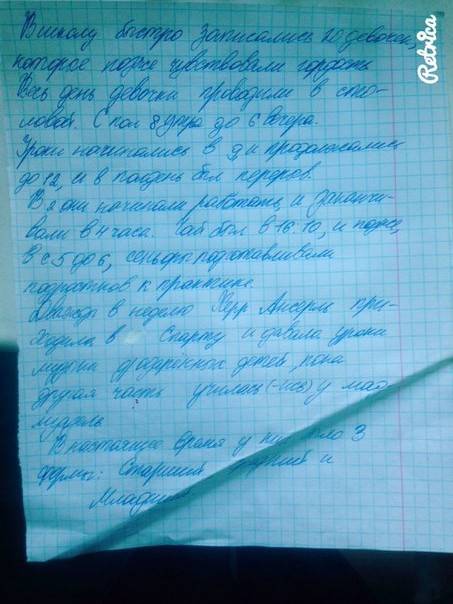 В школу быстро записались 10 девочек,
которое позже чувствовали гордость
Весь день девочки проводили в сто-
ловой. С пол 8 утра до 6 вечера.
Уроки начинались в 9 и продолжались
до 12, и в полдень был перерыв.
В они начинали работать и заканчи-
вали в 4 часа. Чай был в 16.10, и позже,
в с 5 до 6, подготавливали
подростков к практике.
Дважды в неделю Херр Ансель при-
ходила в Спарту и давала уроки
музыки детей, пока
другая часть училась (-ись) у мад-
муазель
В настоящее время у них было 3
формы: Старший и
Младший
Retrica